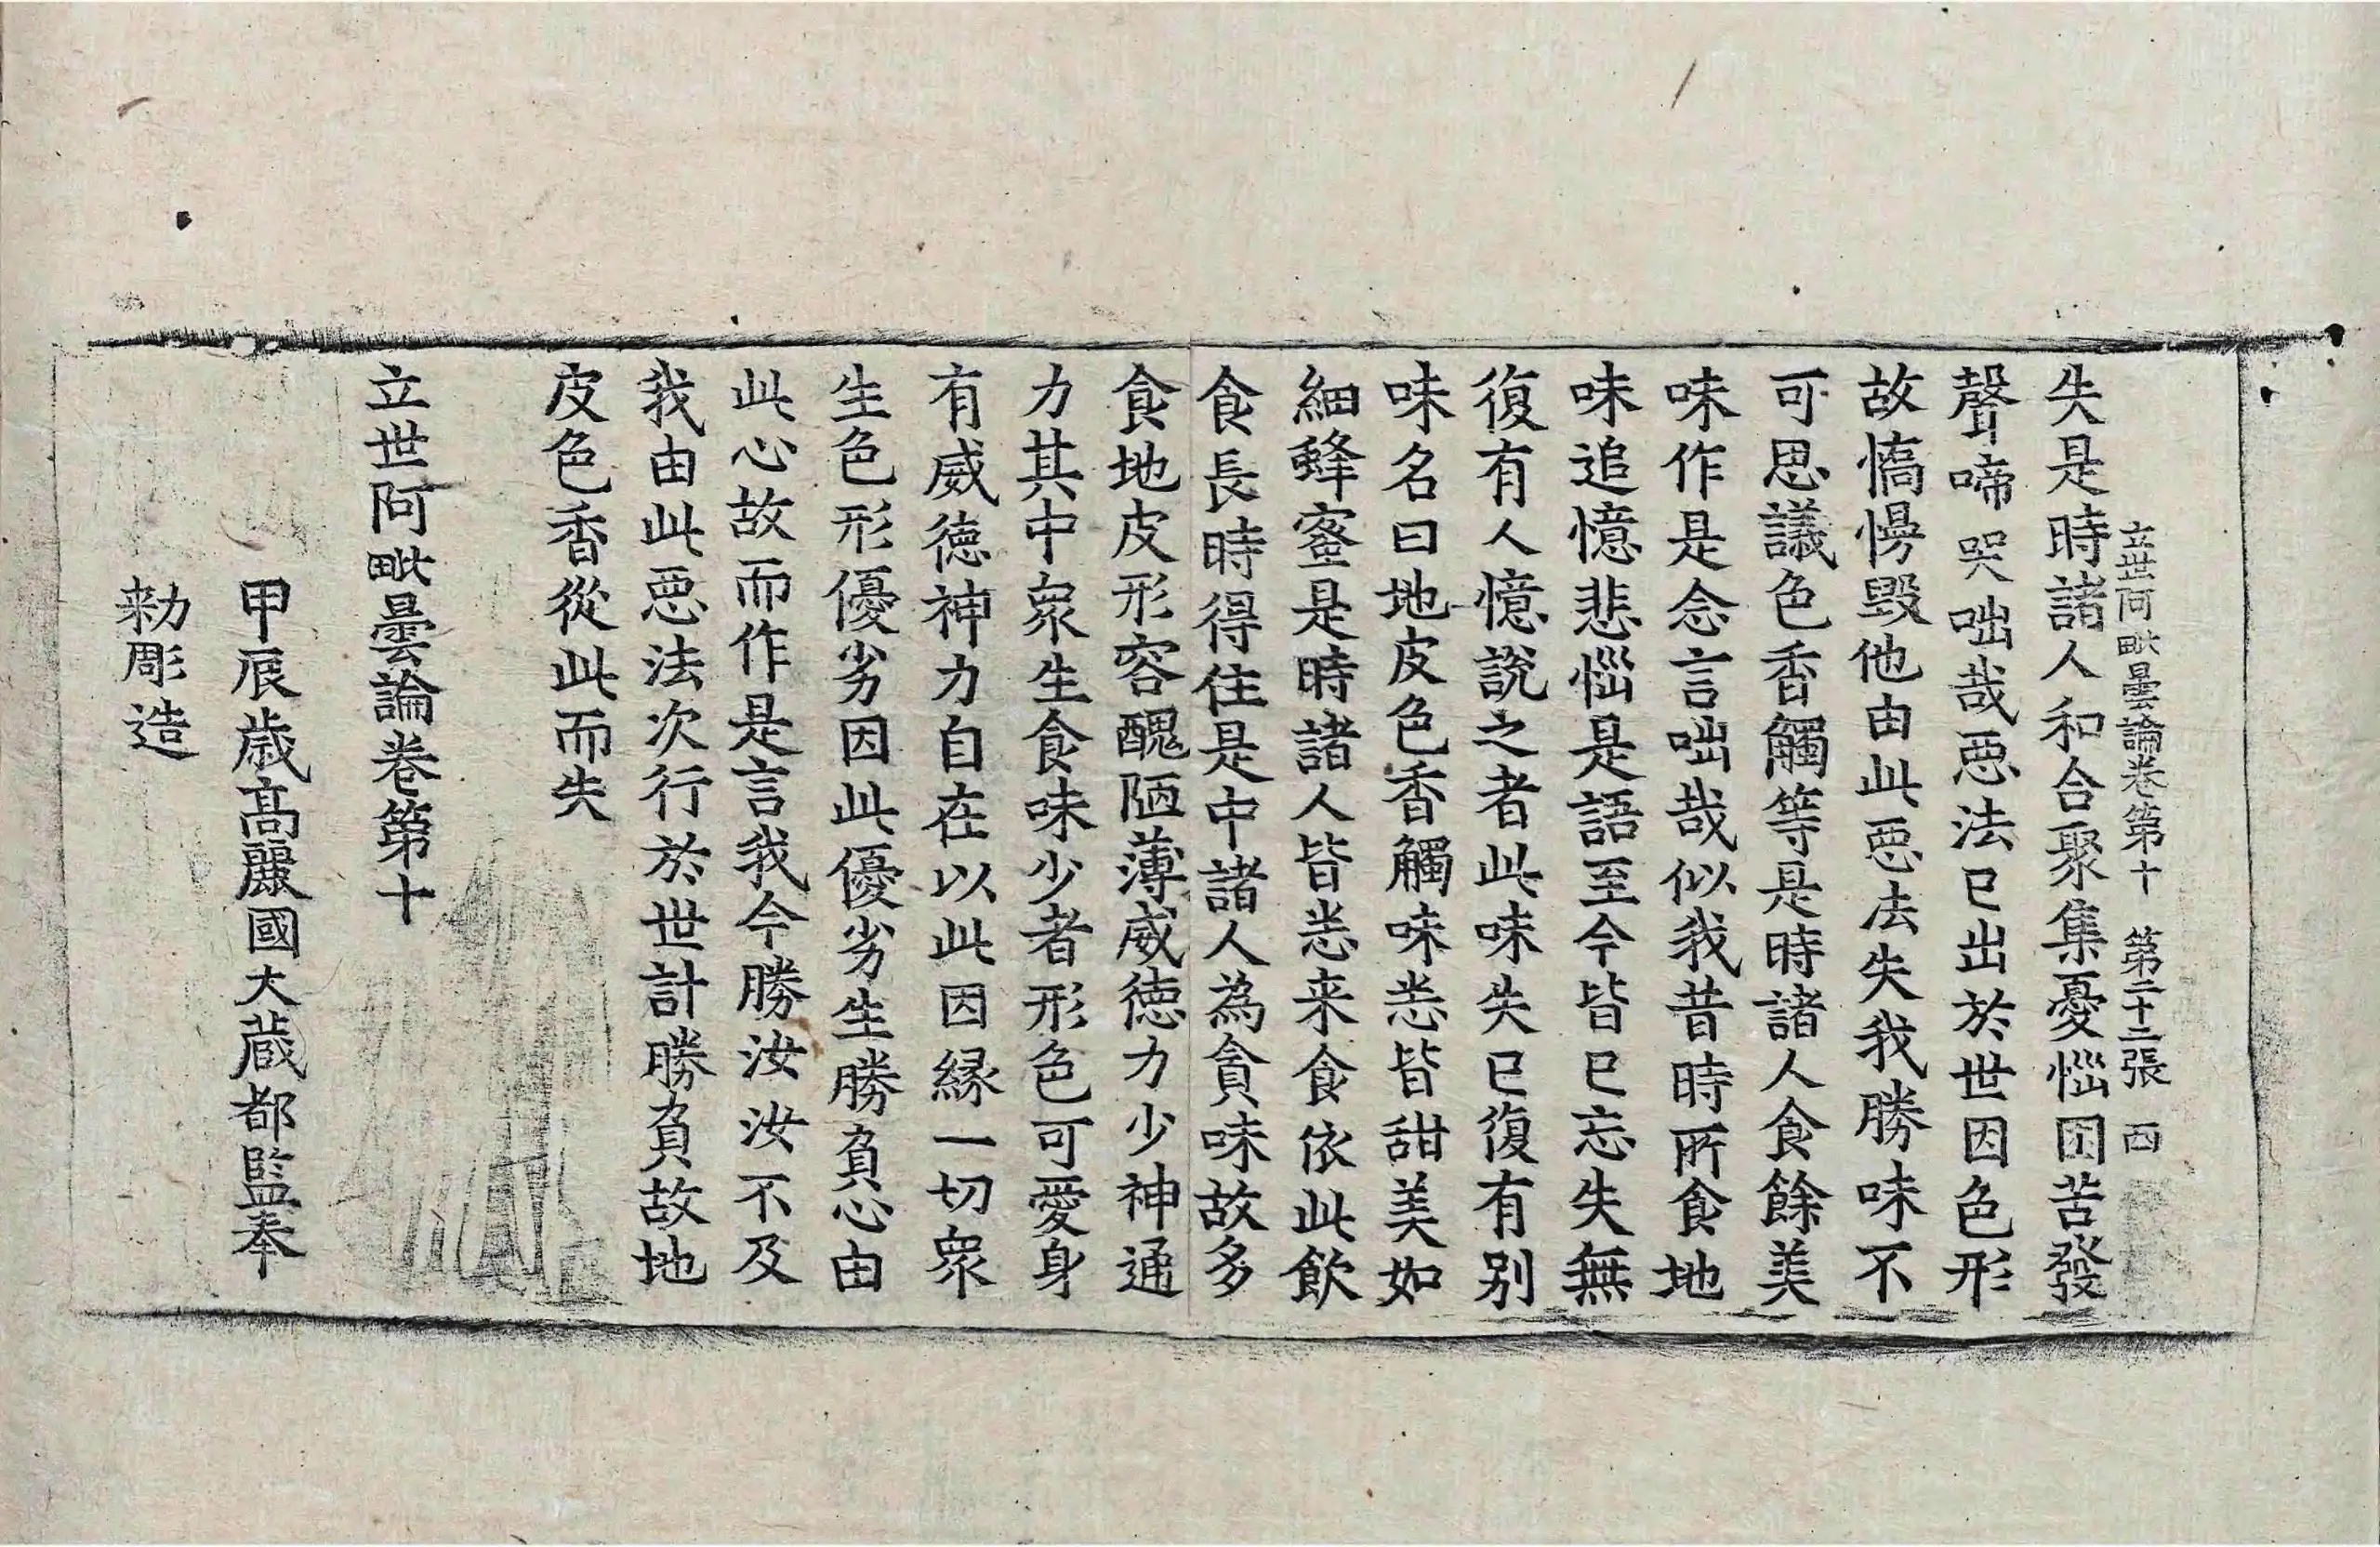 立世阿毗曇論卷第十 第二十二張 西
失是時諸人和合聚集憂惱困苦發
聲啼哭咄哉惡法已出於世因色形
故憍慢毀他由此惡法失我勝味不
可思議色香觸等是時諸人食餘美
味作是念言咄哉似我昔時所食地
味追憶悲惱是語至今皆已忘失無
復有人憶說之者此味失已復有别
味名曰地皮色香觸味悉皆甜美如
細蜂蜜是時諸人皆悉来食依此飲
食長時得住是中諸人為貪味故多
食地皮形容醜陋薄威德力少神通
力其中衆生食味少者形色可愛身
有威德神力自在以此因緣一切衆
生色形優劣因此優劣生勝負心由
此心故而作是言我今勝汝汝不及
我由此惡法次行於世計勝負故地
皮色香從此而失
立世阿毗曇論卷第十
甲辰歳高麗國大藏都監奉
勑彫造